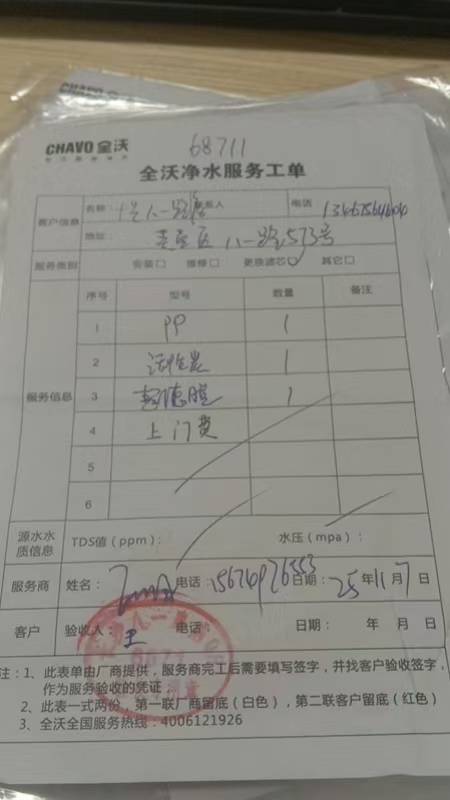 CHAVO 全沃
68711
全沃净水服务工单
客户信息 名称: 八一路店 联系人 电话
地址: 芙蓉区 八一路573号
服务类别 安装□ 维修□ 更换滤芯☑ 其它□
服务信息 序号 型号 数量 备注
1 PP 1
2 活性炭 1
3 1
4 上门费
5
6
源水水质信息 TDS值(ppm): 水压(mpa):
服务商 姓名: 电话: 15674926553 日期: 25年11月7日
客户 验收人: 王 电话: 日期: 年 月 日
注: 1、此表单由厂商提供,服务商完工后需要填写签字,并找客户验收签字,
作为服务验收的凭证;
2、此表一式两份,第一联厂商留底(白色),第二联客户留底(红色)
3、全沃全国服务热线: 4006121926